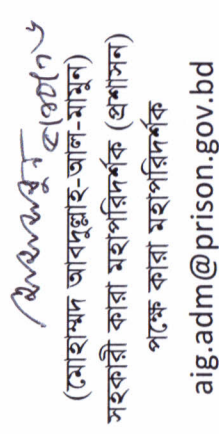 (মোহাম্মদ আবদুল্লাহ-আল-মামুন)
সহকারী কারা মহাপরিদর্শক (প্রশাসন)
পক্ষে কারা মহাপরিদর্শক
aig.adm@prison.gov.bd